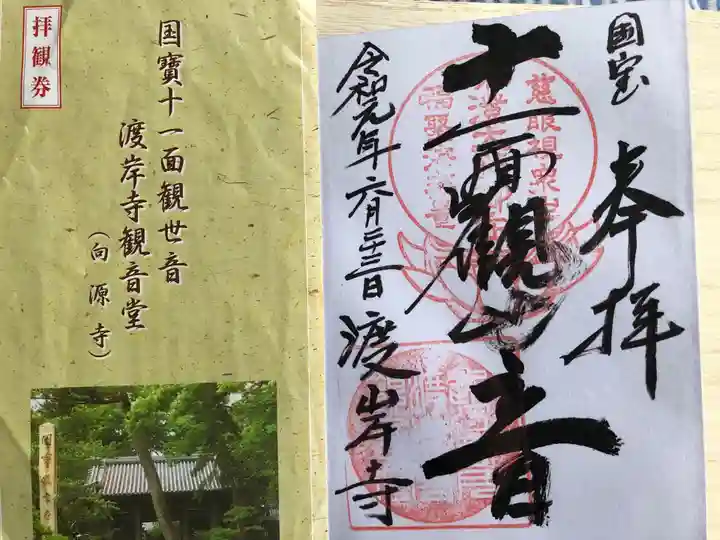 拝観券
国寶十一面観世音
渡岸寺観音堂
（向源寺）
国宝
奉拝
十一面観世音
令和元年六月二十三日
渡岸寺
慈眼視衆生